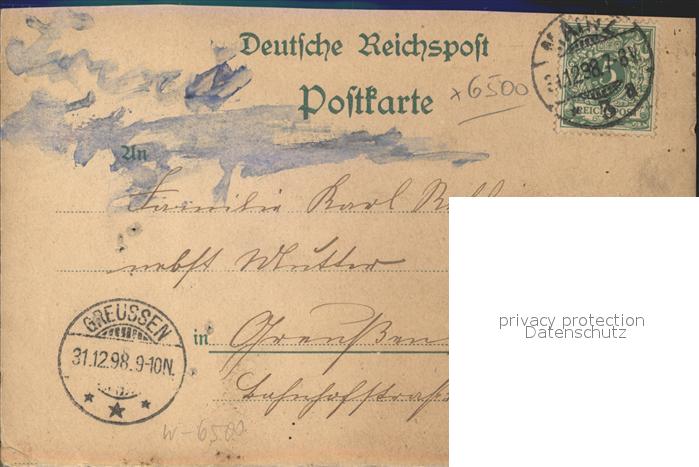 Deutsche Reichspost
Postkarte
x 6500
31.12.98. 7-8V.
a
5
REICHSPOST
An
Familie Karl
nebst Mutter
privacy protection
Datenschutz
GREUSSEN
31.12.98. 9-10N.
in Greußen
Bahnhofstraß
W-6500